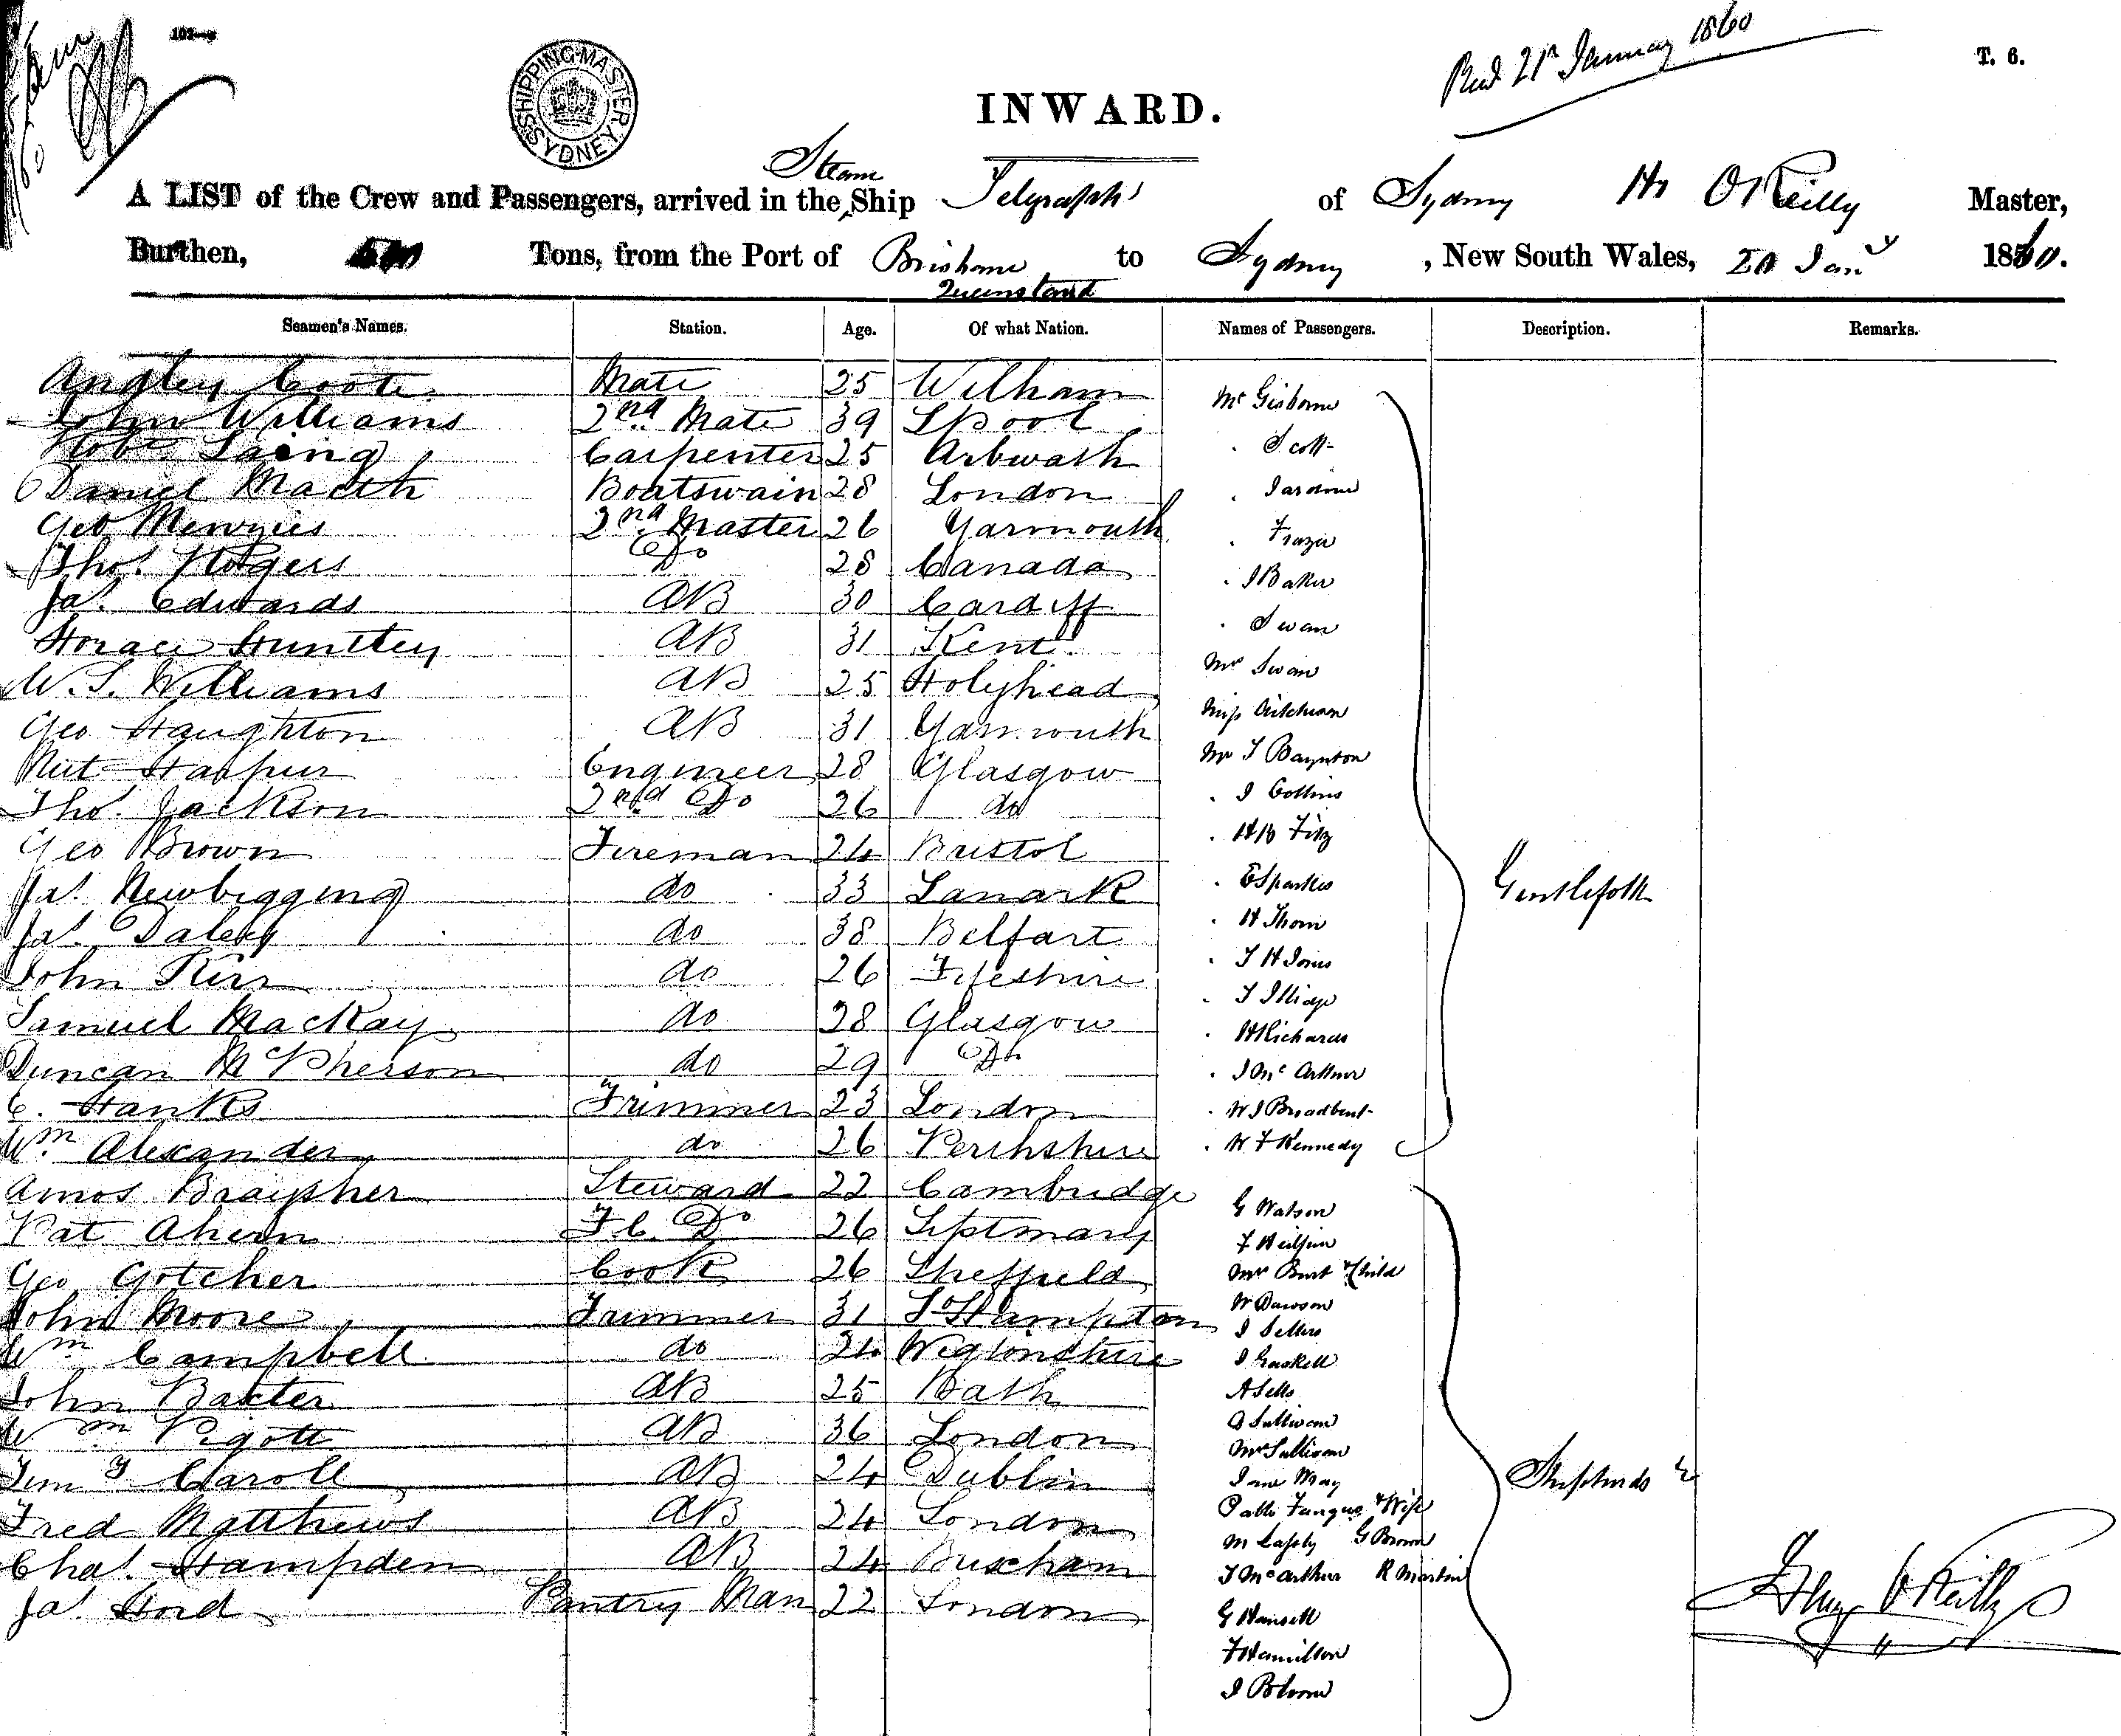 INWARD.
T. 6.
21st January 1860
SHIPPING MASTER SYDNEY
Steam
A LIST of the Crew and Passengers, arrived in the Ship Telegraph of Sydney Hy O'Reilly Master,
Burthen, Tons, from the Port of Brisbane to Sydney, New South Wales, 20 Jany 1860.
Queensland
Seamen's Names. Station. Age. Of what Nation. Names of Passengers. Description. Remarks.
Mate 25 Witham Mr Gisborne
John Williams 2nd Mate 39 LPool " Scott
Robt Laing Carpenter 25 Arbwath
Daniel Boatswain 28 London " Jardine
Geo Menzies 2nd Master 26 Yarmouth " Frazer
Thos Rogers Do 28 Canada " J Baker
Jas Edwards AB 30 Cardiff " Swan
Horace Huntley AB 31 Kent Mrs Swan
W. S. Williams AB 25 Holyhead Miss
Geo Haughton AB 31 Yarmouth Mr T Baynton
Engineer 28 Glasgow " J Collins
Thos Jackson 2nd Do 26 do " Fitz
Geo Brown Fireman 24 Bristol
Jas Newbigging do 33 Lanark " E Sparkes Gentlefolk
Jas Daley do 38 Belfast " H Thorn
John Kerr do 26 Fifeshire " T H Jones
Samuel MacKay do 28 Glasgow " T Illidge
Duncan McPherson do 29 Do " H Richards
C. Hanks Trimmer 23 London " J McArthur
Wm Alexander do 26 Perthshire " W J Broadbent
" W F Kennedy
Amos Braysher Steward 22 Cambridge G Watson
Pat Ahern F C Do 26
Geo Gotcher Cook 26 Sheffield Mrs Burt & Child
John Moore Trimmer 31 SoHampton W Dawson
J Sellers
Wm Campbell do 24 Wigtonshire J Gaskell
John Baxter AB 25 Bath A Sells
Wm Pigott AB 36 London Sullivan
Mrs Sullivan
Timy Caroll AB 24 Dublin Jane May Shepherds &c
Fred Matthews AB 24 London & Wife
Chas Hampden AB 24 G Brown
T McArthur R Martin
Jas Hord Pantry Man 22 London G Hansell
F Hamilton
J Bloom
Henry O'Reilly